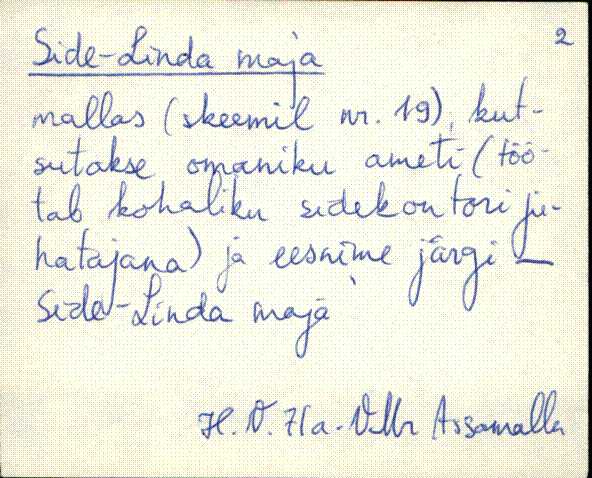 2
Side-Linda maja
mallas (skeemil nr. 19), kut-
sutakse omaniku ameti (töö-
tab kohaliku sidekontori ju-
hatajana) ja eesnime järgi —
Side-Linda maja
H. V. 71a. VMr Assamalla